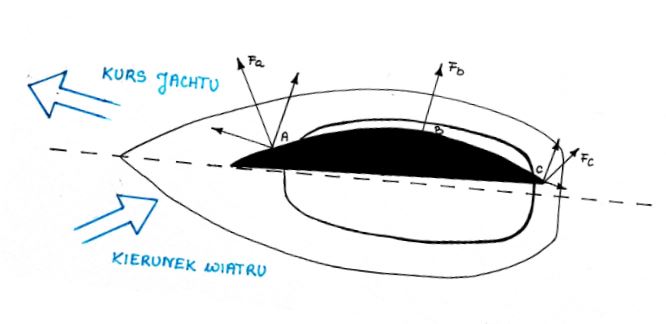 KURS JACHTU
Fa
Fb
A
B
C
Fc
KIERUNEK WIATRU